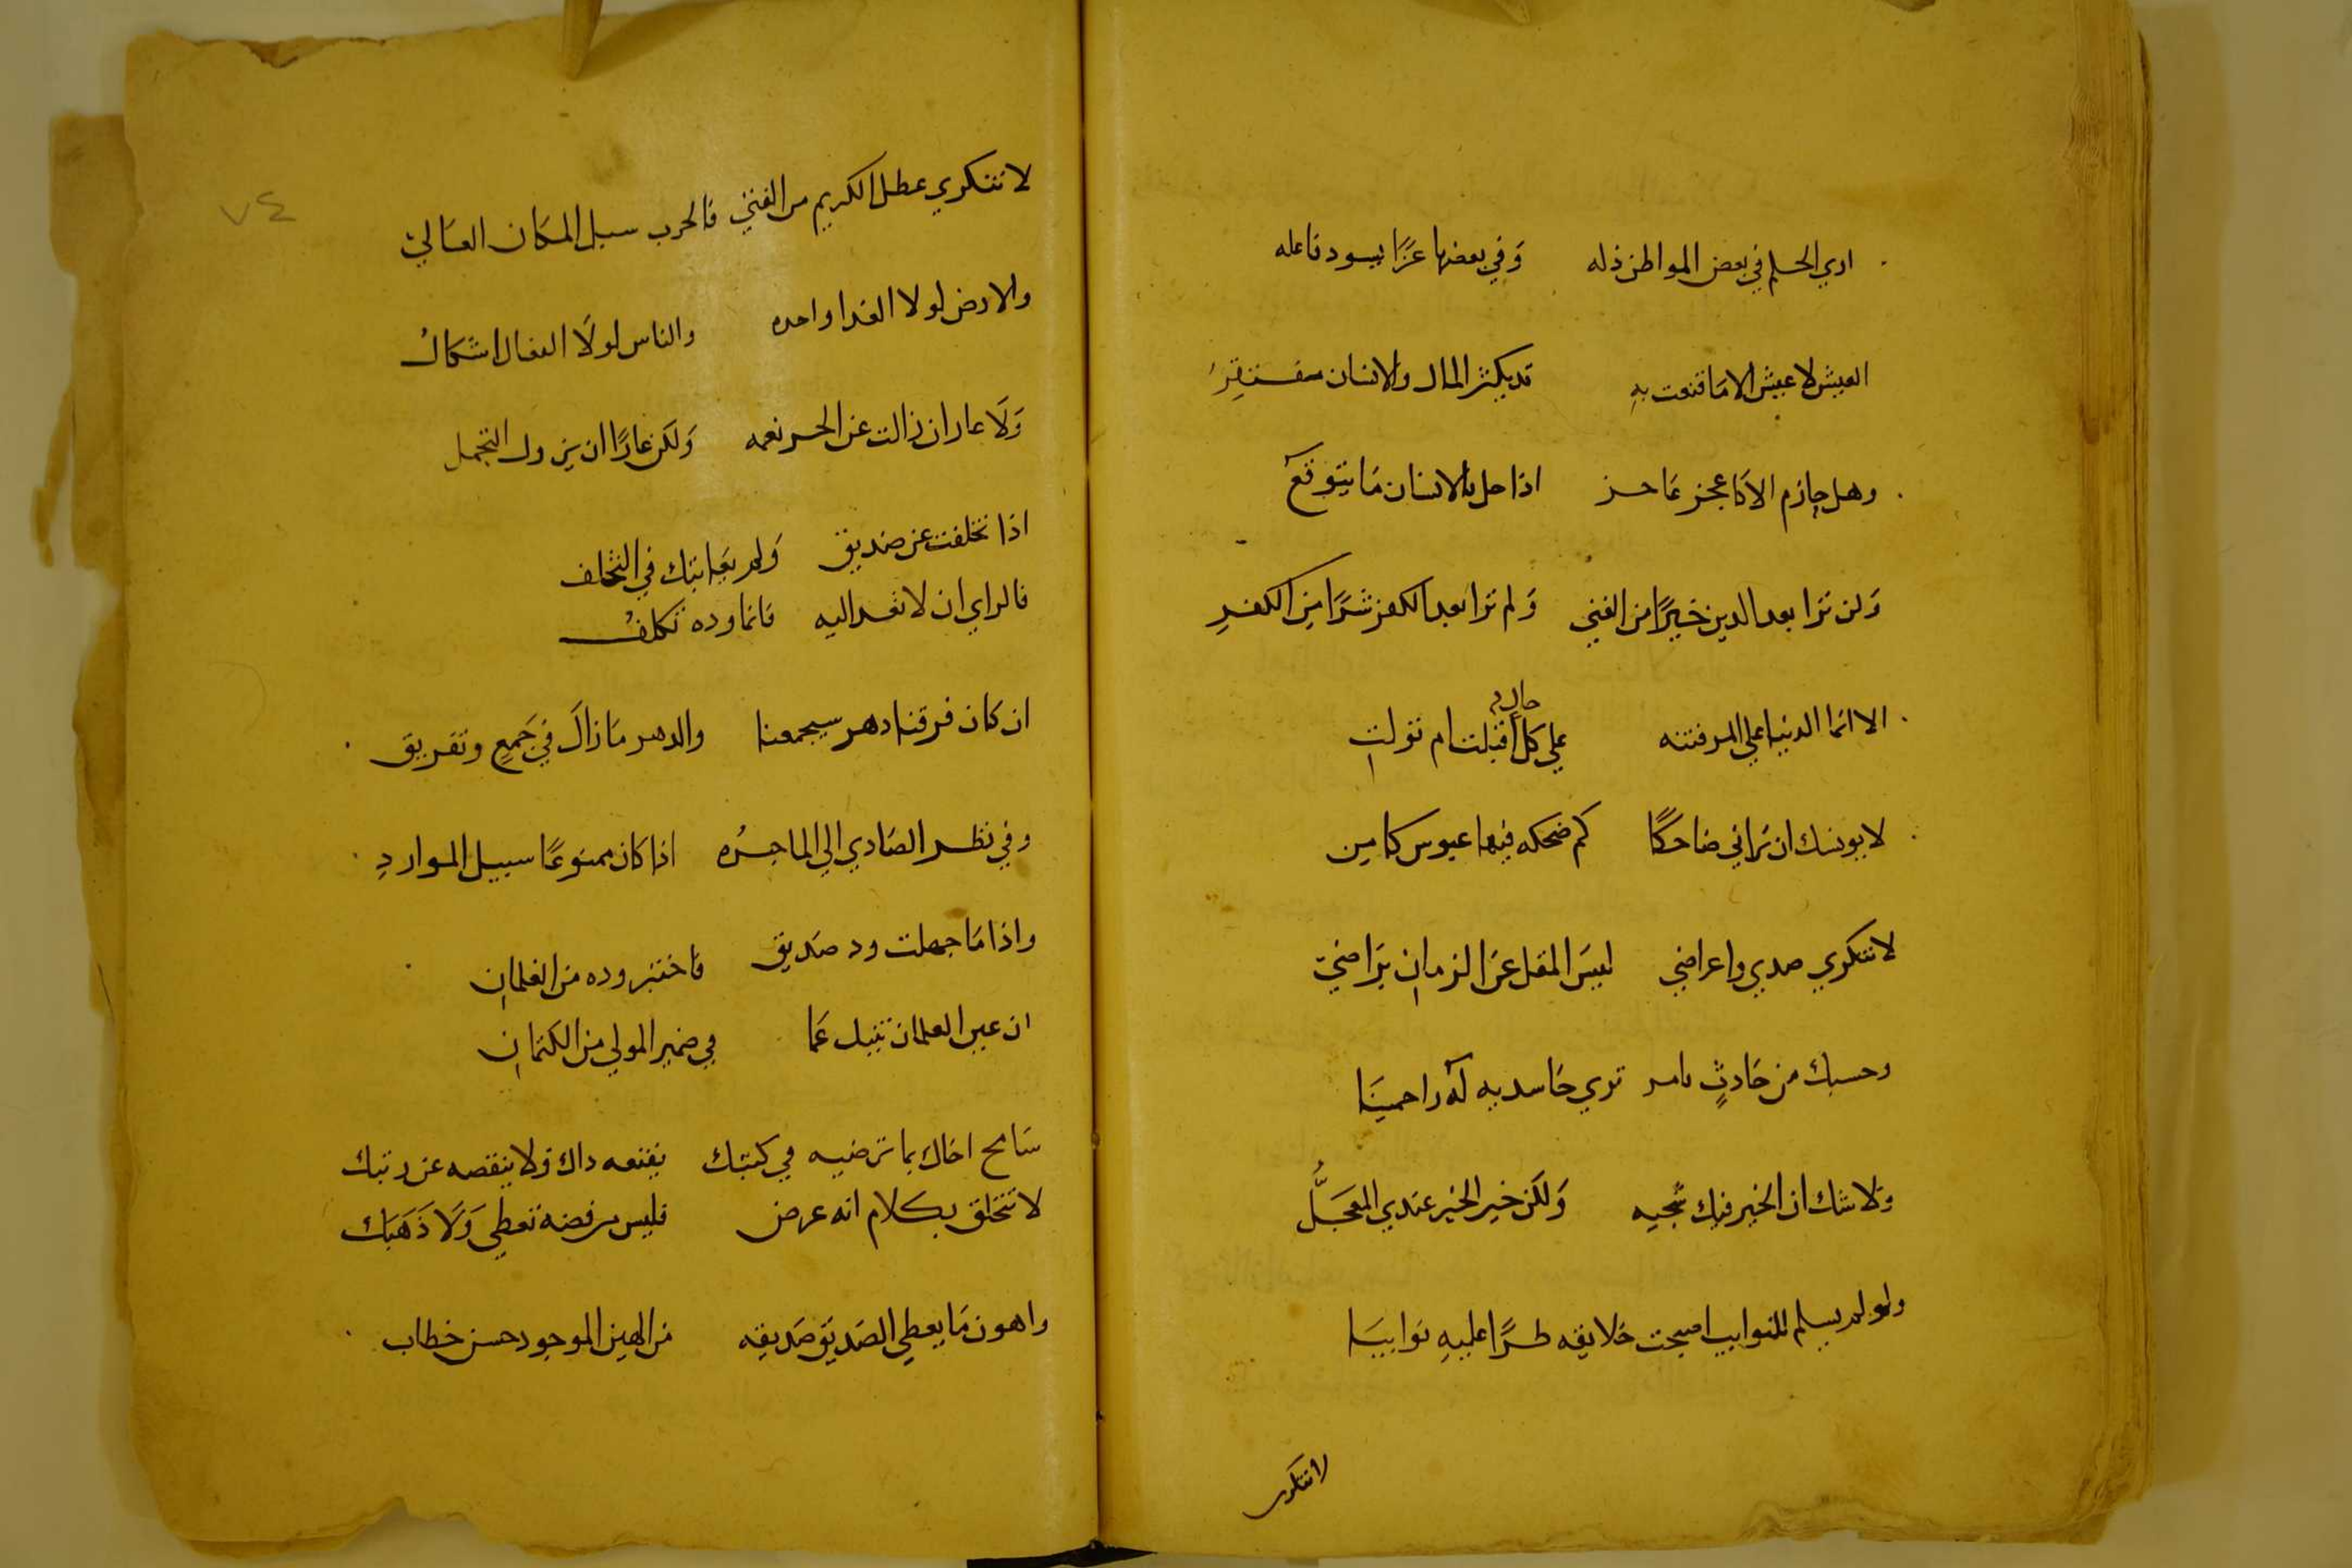 اري الحلم في بعض المواطن ذله وَفي بعضها عزًا يسود فاعله
العيش لا عيش الا مَا قنعت بهِ قد يكثر المال والانسان مفتقِرُ
وهل جازم الاكا عجز عَاحز اذا حل بالانسان مَا يتوقعَ
وَلن ترا بعد الدين خيرًا من الغني وَلم ترا بعد الكفر شرًا مِن الكفرِ
حالٍ
الا انما الدنيا علي المر فتنه علي كل اقبلت ام تولتِ
لا يونسك ان تَراني ضاحكًا كم ضحكه فيها عبوس كامِن
لا تنكري صدي واعراضي ليسَ المقل عَن الزمانِ بَراضيّ
وحسبك من حَادثٍ بامر تري حَاسديه لهَ راحمينَا
وَلا شك ان الخير فيك سَجيه وَلكن خير الخير عندي المعَجَلُّ
ولو لم يسلم للنوايب اصبحت خلايقه طرًا عليهِ نوايبَا
لا تنكري
٧٤
لا تنكري عطل الكريم من الغني فالحرب سيل المكَان العَاليّ
والارض لولا الغدا واحده والناس لولَا الفعال اشكَالُ
وَلَا عار ان زالت عن الحر نعمه وَلكن عارًا ان يزول التجمل
اذا تخلفت عن صَديق وَلم يعَاتبك في التخلف
فالراي ان لا تعد اليه فانما وده تكلفُ
ان كان فرقنا دهر سيجمعنا والدهر مَا زالَ في جَمعٍ وتفريق
وفي نظر الصَادي الي الما حسرُه اذا كان ممنوعًا سبيل المواردِ
واذا مَا جهلت ود صَديق فاختبر وده من الغلمانِ
ان عين الغلمان تنبيك عَما في ضمير المولي من الكتمانِ
سَامح اخاك بما ترضيه في كتبك يقنعه داك وَلا ينقصه عن رتبك
لا تتخلق بكلام انه عرض فليس من فضهٍ تعطي وَلَا ذَهَبك
واهون مَا يعطي الصَديق صَديقه من الهين الموجود حسن خطاب